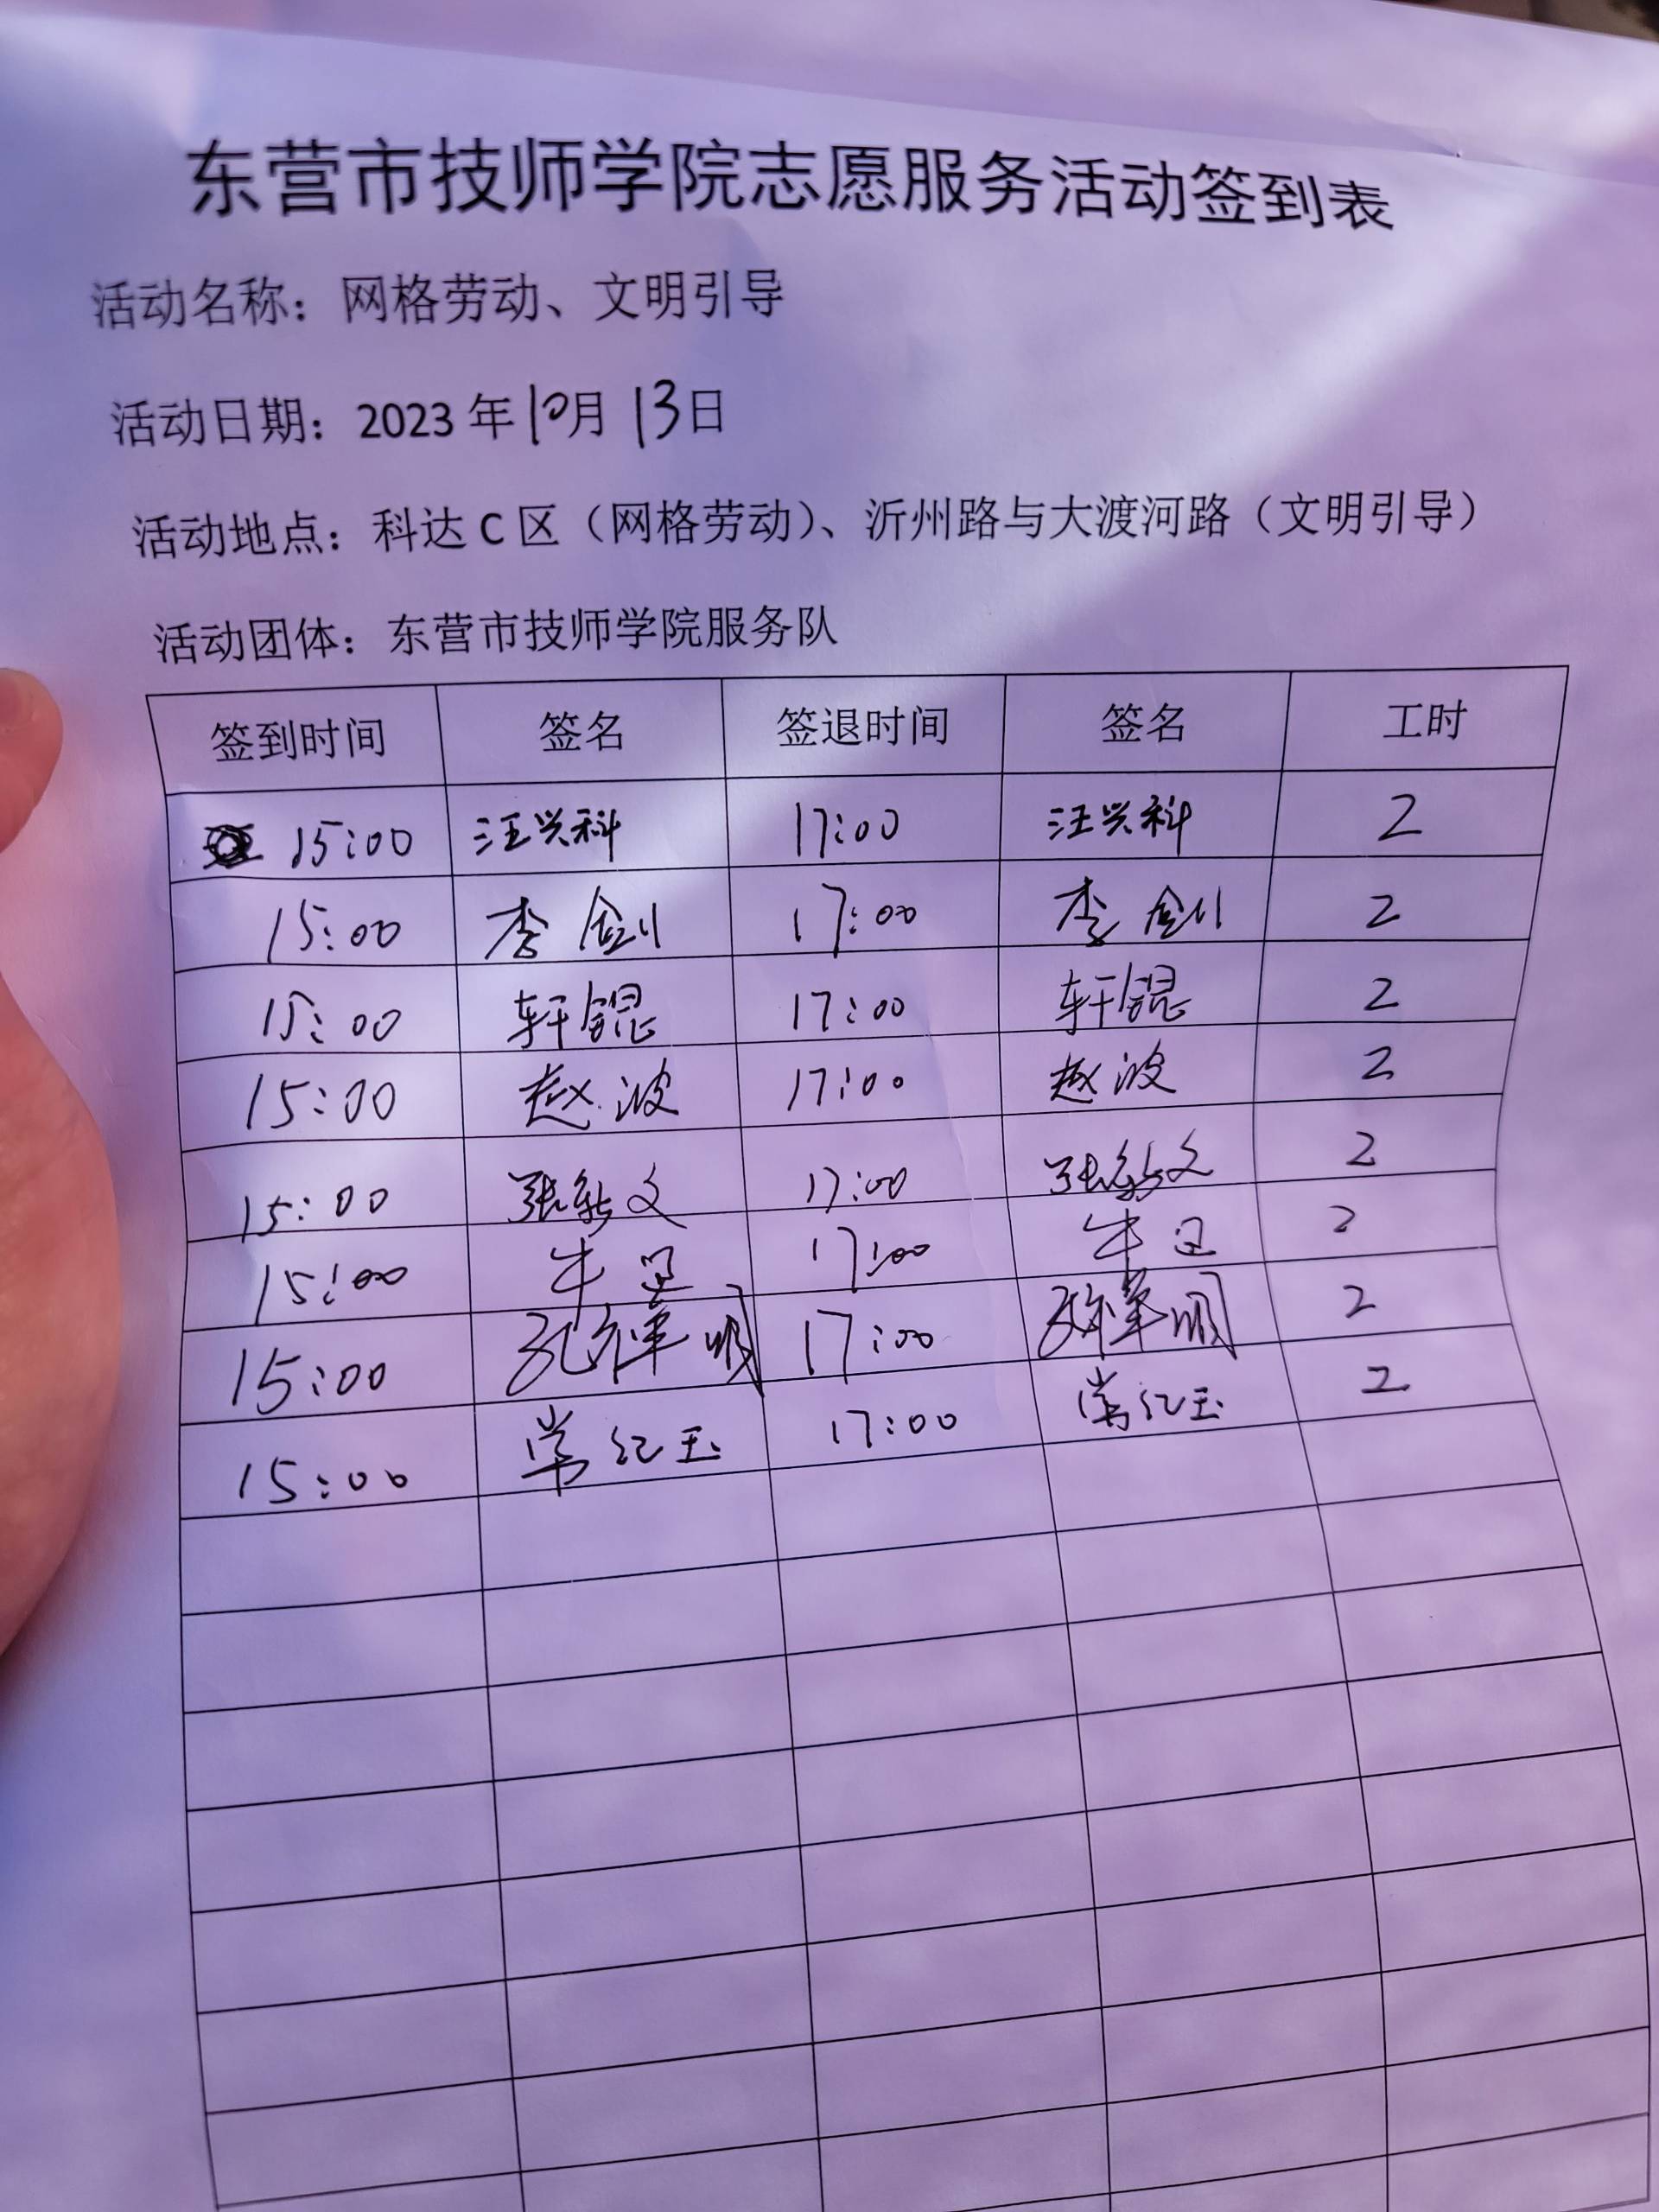 东营市技师学院志愿服务活动签到表
活动名称：网格劳动、文明引导
活动日期：2023年10月13日
活动地点：科达C区（网格劳动）、沂州路与大渡河路（文明引导）
活动团体：东营市技师学院服务队
签到时间 签名 签退时间 签名 工时
15:00 汪兴科 17:00 汪兴科 2
15:00 李剑 17:00 李剑 2
15:00 轩锟 17:00 轩锟 2
15:00 赵波 17:00 赵波 2
15:00 张新文 17:00 张新文 2
15:00 牛 17:00 牛 2
15:00 孔祥明 17:00 孔祥明 2
15:00 常红玉 17:00 常红玉 2